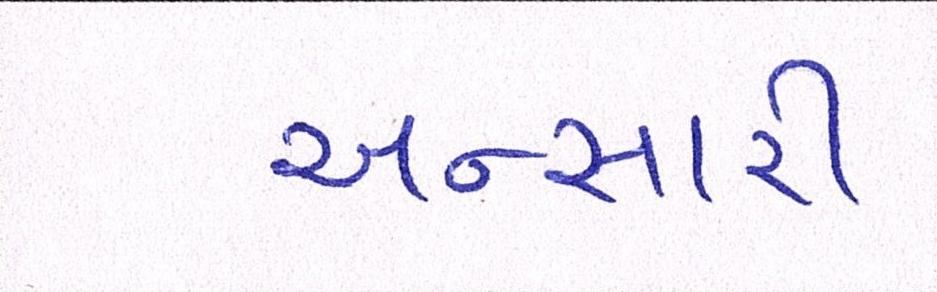 અન્સારી